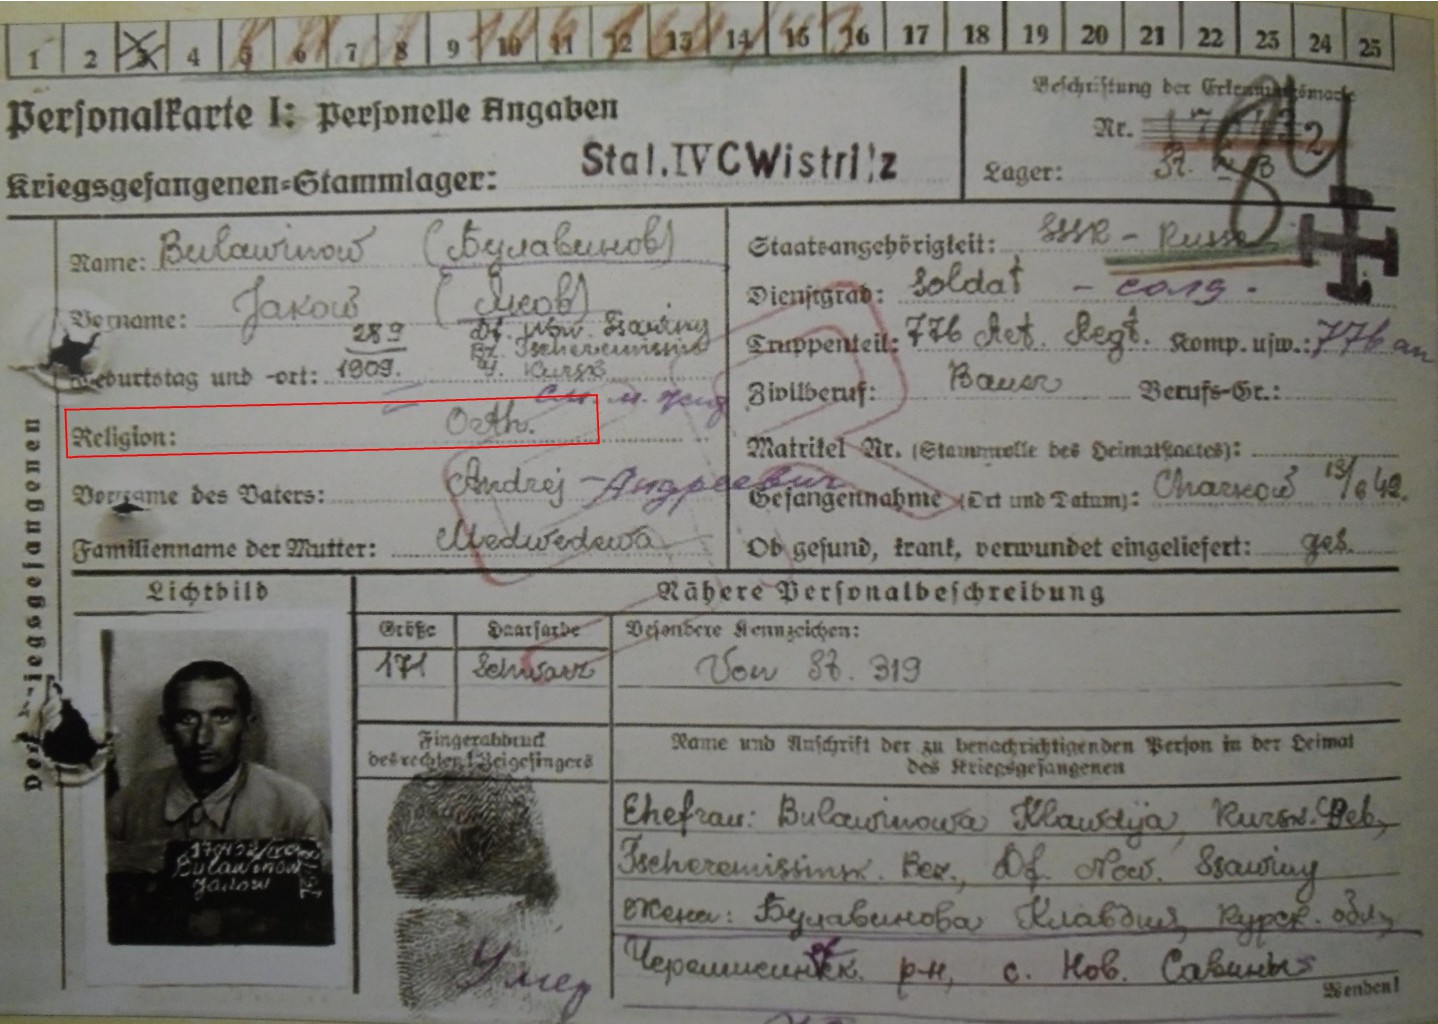 1 2 3 4 5 6 7 8 9 10 11 12 13 14 15 16 17 18 19 20 21 22 23 24 25
Personalkarte I: Personelle Angaben
Kriegsgefangenen-Stammlager: Stal. IV C Wistritz
Beschriftung der Erkennungsmarke
Nr.
Lager:
Des Kriegsgefangenen
Name: Bulawinow (Булавинов)
Vorname: Jakow (Яков)
Geburtstag und -ort: 28 9 1909. Df. Now. Ssawiny
Bz. Tscheremissino
G. Kursk
Religion: Orth.
Vorname des Vaters: Andrej - Андреевич
Familienname der Mutter: Medwedewa
Staatsangehörigkeit: SSSR - Russe
Dienstgrad: Soldat - солд.
Truppenteil: 776 Art. Regt. Komp. usw.: 776 ап
Zivilberuf: Bauer Berufs-Gr.:
Matrikel Nr. (Stammrolle des Heimatstaates):
Gefangennahme (Ort und Datum): Charkow 13/6 42.
Ob gesund, krank, verwundet eingeliefert: ges.
Lichtbild
Nähere Personalbeschreibung
Größe Haarfarbe Besondere Kennzeichen:
171 Schwarz Von St. 319
Fingerabdruck
des rechten! Zeigefingers
Name und Anschrift der zu benachrichtigenden Person in der Heimat
des Kriegsgefangenen
Ehefrau: Bulawinowa Klawdija, Kursk. Geb.,
Tscheremissinsk. Bez., Df. Now. Ssawiny
Жена: Булавинова Клавдия, Курск. обл,
Черемисинск. р-н, с. Нов. Савины
Bulawinow
Jakow
Умер
Wenden!